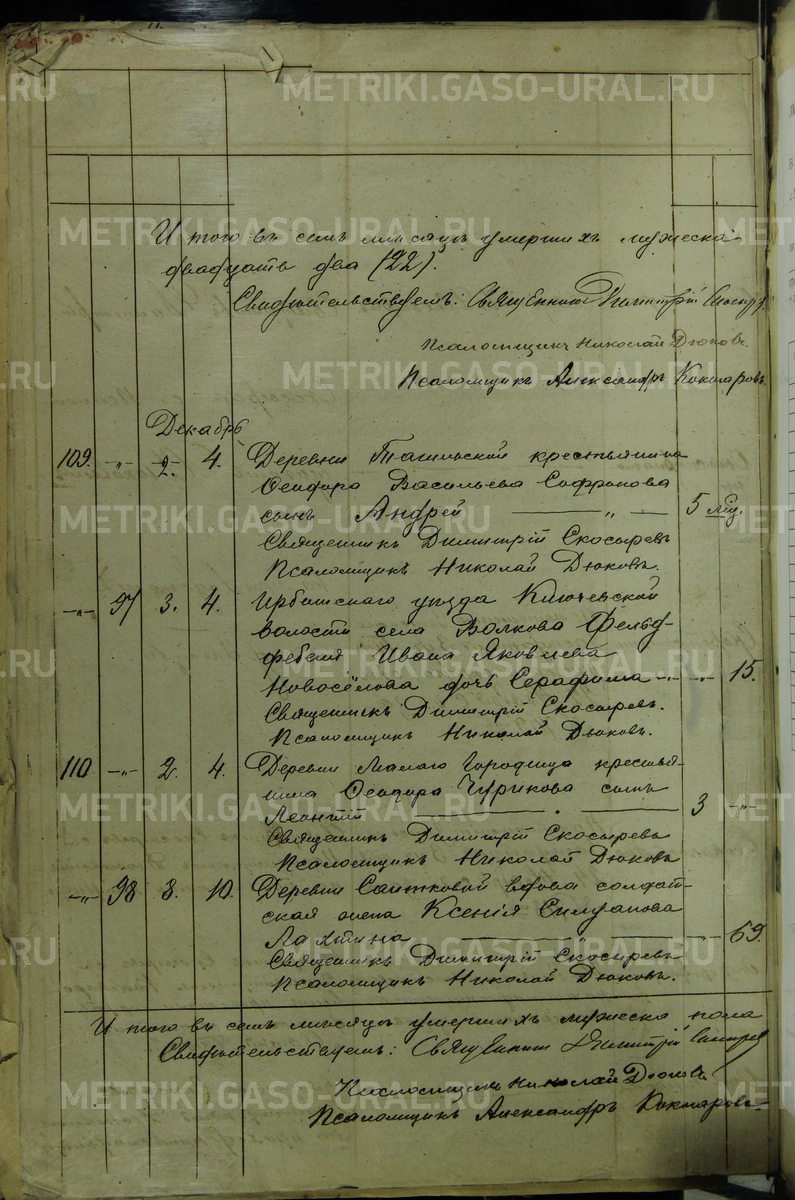 METRIKI.GASO-URAL.RU
И того въ семъ мѣсяцѣ умершихъ мужеска
двадцать два (22).
Свидѣтельствуемъ: Священникъ Димитрій Скосырев
Псаломщикъ Николай Дюковъ.
Псаломщикъ Александръ Кокшаровъ.
Декабрь
109. -„- 2. 4. Деревни Тагильской крестьянина
Ѳеодора Васильева Софронова
сынъ Андрей — „ — 5 мѣс.
Священникъ Димитрій Скосыревъ
Псаломщикъ Николай Дюковъ.
-„- 97 3. 4. Ирбитскаго уѣзда Ключевской
волости села Волкова Фельд-
фебеля Ивана Яковлева
Новосёлова дочь Серафима -„- -„- 15.
Священникъ Димитрій Скосыревъ.
Псаломщикъ Николай Дюковъ.
110 -„- 2. 4. Деревни Малаго Городища крестья-
нина Ѳеодора Чурикова сынъ
Леонтій — 3 -„-
Священникъ Димитрій Скосыревъ
Псаломщикъ Николай Дюковъ
-„- 98 8. 10. Деревни вдова солдат-
ская жена Ксенія Силуанова
Лахтина — -„- 69.
Священникъ Димитрій Скосыревъ
Псаломщикъ Николай Дюковъ.
И того въ семъ мѣсяцѣ умершихъ мужеска пола
Свидѣтельствуемъ: Священник Димитрій
Псаломщикъ Николай Дюковъ
Псаломщикъ Александръ Кокшаровъ.